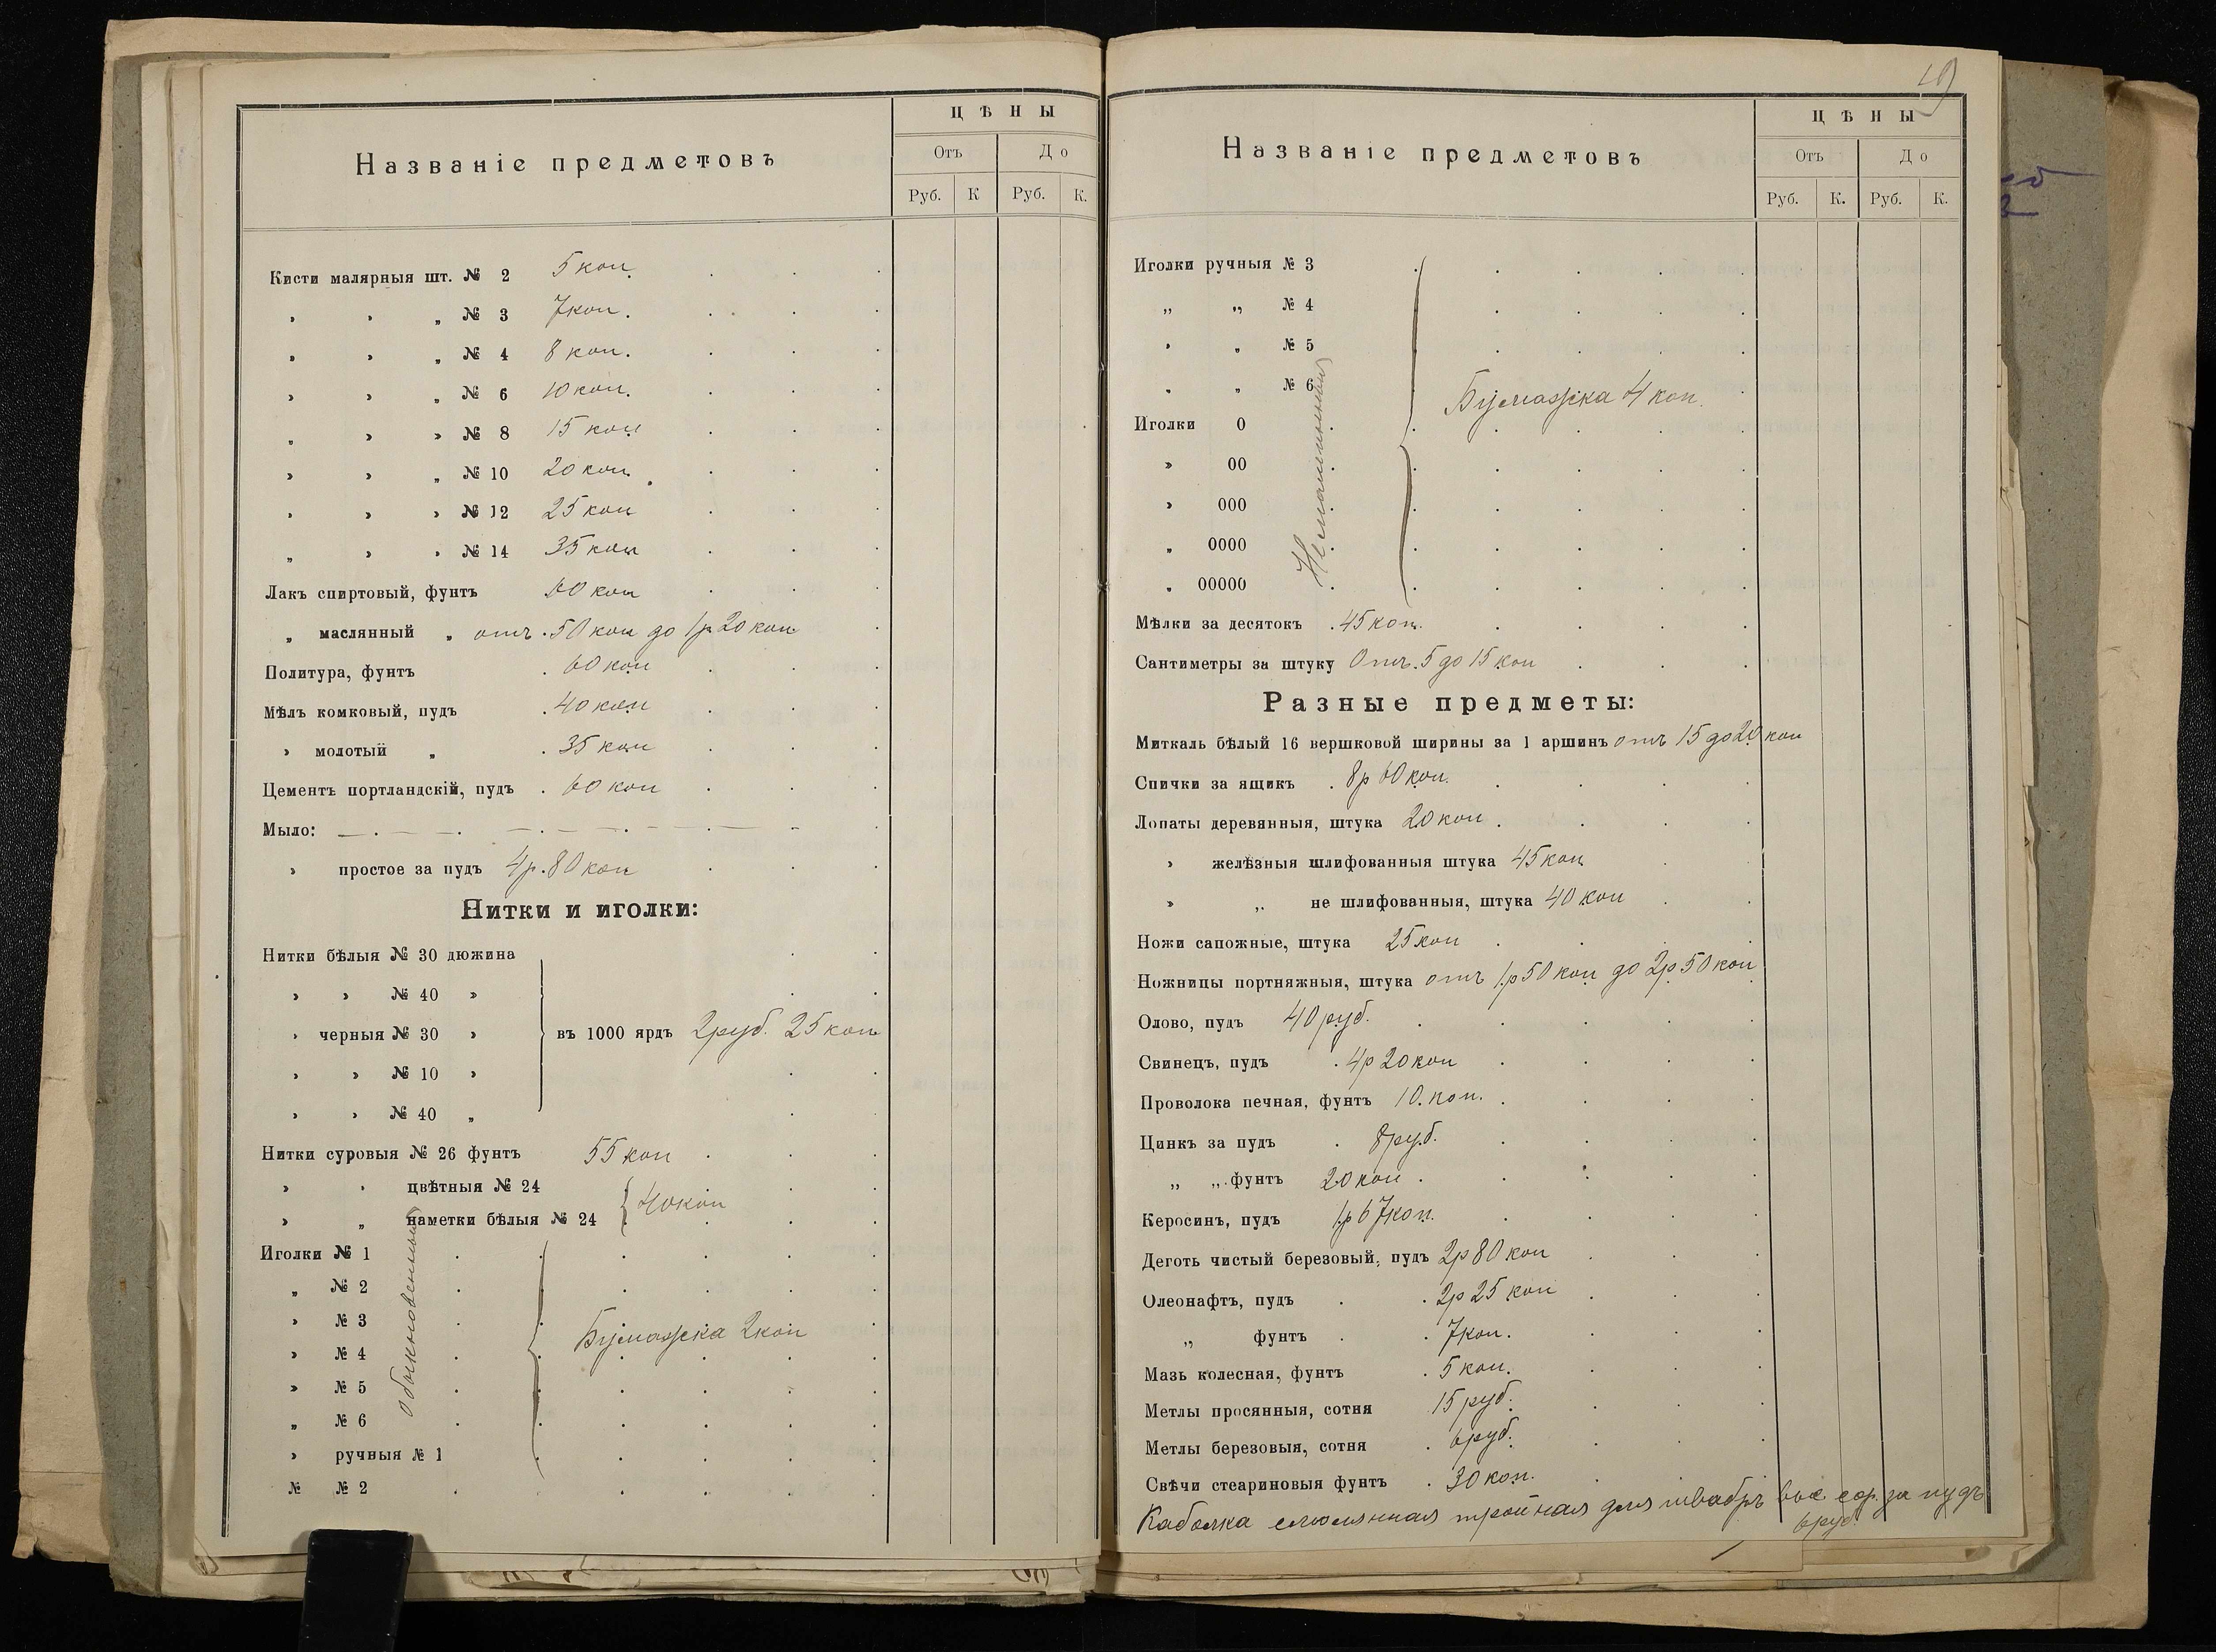 Названіе предметовъ
ЦѢНЫ
Отъ До
Руб. К Руб. К.
Кисти малярныя шт. № 2 5 коп.
» » „ № 3 7 коп.
» » „ № 4 8 коп.
» » „ № 6 10 коп.
„ » » № 8 15 коп
» » „ № 10 20 коп
» » » № 12 25 коп
„ » » № 14 35 коп
Лакъ спиртовый, фунтъ 60 коп
„ маслянный „ отъ 50 коп до 1р 20 коп
Политура, фунтъ 60 коп
Мѣлъ комковый, пудъ 40 коп
» молотый „ 35 коп
Цементъ портландскій, пудъ 60 коп
Мыло: — — — — — —
» простое за пудъ 4р. 80 коп
Нитки и иголки:
Нитки бѣлыя № 30 дюжина
» » № 40 »
» черныя № 30 » въ 1000 ярдъ 2 руб. 25 коп
» » № 10 »
» » № 40 „
Нитки суровыя № 26 фунтъ 55 коп
» » цвѣтныя № 24
» „ наметки бѣлыя № 24 40 коп
Иголки № 1
„ № 2
» № 3
» № 4
» № 5
„ № 6
» ручныя № 1
№ № 2
обыкновенный
Бумажка 2 коп
19
Названіе предметовъ
ЦѢНЫ
Отъ До
Руб. К. Руб. К.
Иголки ручныя № 3
„ „ № 4
» „ № 5
„ „ № 6
Бумажка 4 коп.
Иголки 0
» 00
» 000
„ 0000
„ 00000
Мѣлки за десятокъ 45 коп.
Сантиметры за штуку Отъ 5 до 15 коп
Разные предметы:
Миткаль бѣлый 16 вершковой ширины за 1 аршинъ отъ 15 до 20 коп
Спички за ящикъ 8р 60 коп.
Лопаты деревянныя, штука 20 коп
» желѣзныя шлифованныя штука 45 коп
» „ не шлифованныя, штука 40 коп
Ножи сапожные, штука 25 коп
Ножницы портняжныя, штука отъ 1р 50 коп до 2р 50 коп
Олово, пудъ 40 руб.
Свинецъ, пудъ 4р 20 коп
Проволока печная, фунтъ 10. коп.
Цинкъ за пудъ 8 руб.
„ „ фунтъ 20 коп
Керосинъ, пудъ 1р 67 коп.
Деготь чистый березовый, пудъ 2р 80 коп
Олеонафтъ, пудъ 2р 25 коп
„ фунтъ 7 коп.
Мазь колесная, фунтъ 5 коп.
Метлы просянныя, сотня 15 руб.
Метлы березовыя, сотня 6 руб.
Свѣчи стеариновыя фунтъ 30 коп.
Каболка смолянная тройная для швабръ выс сор. за пудъ
6 руб.